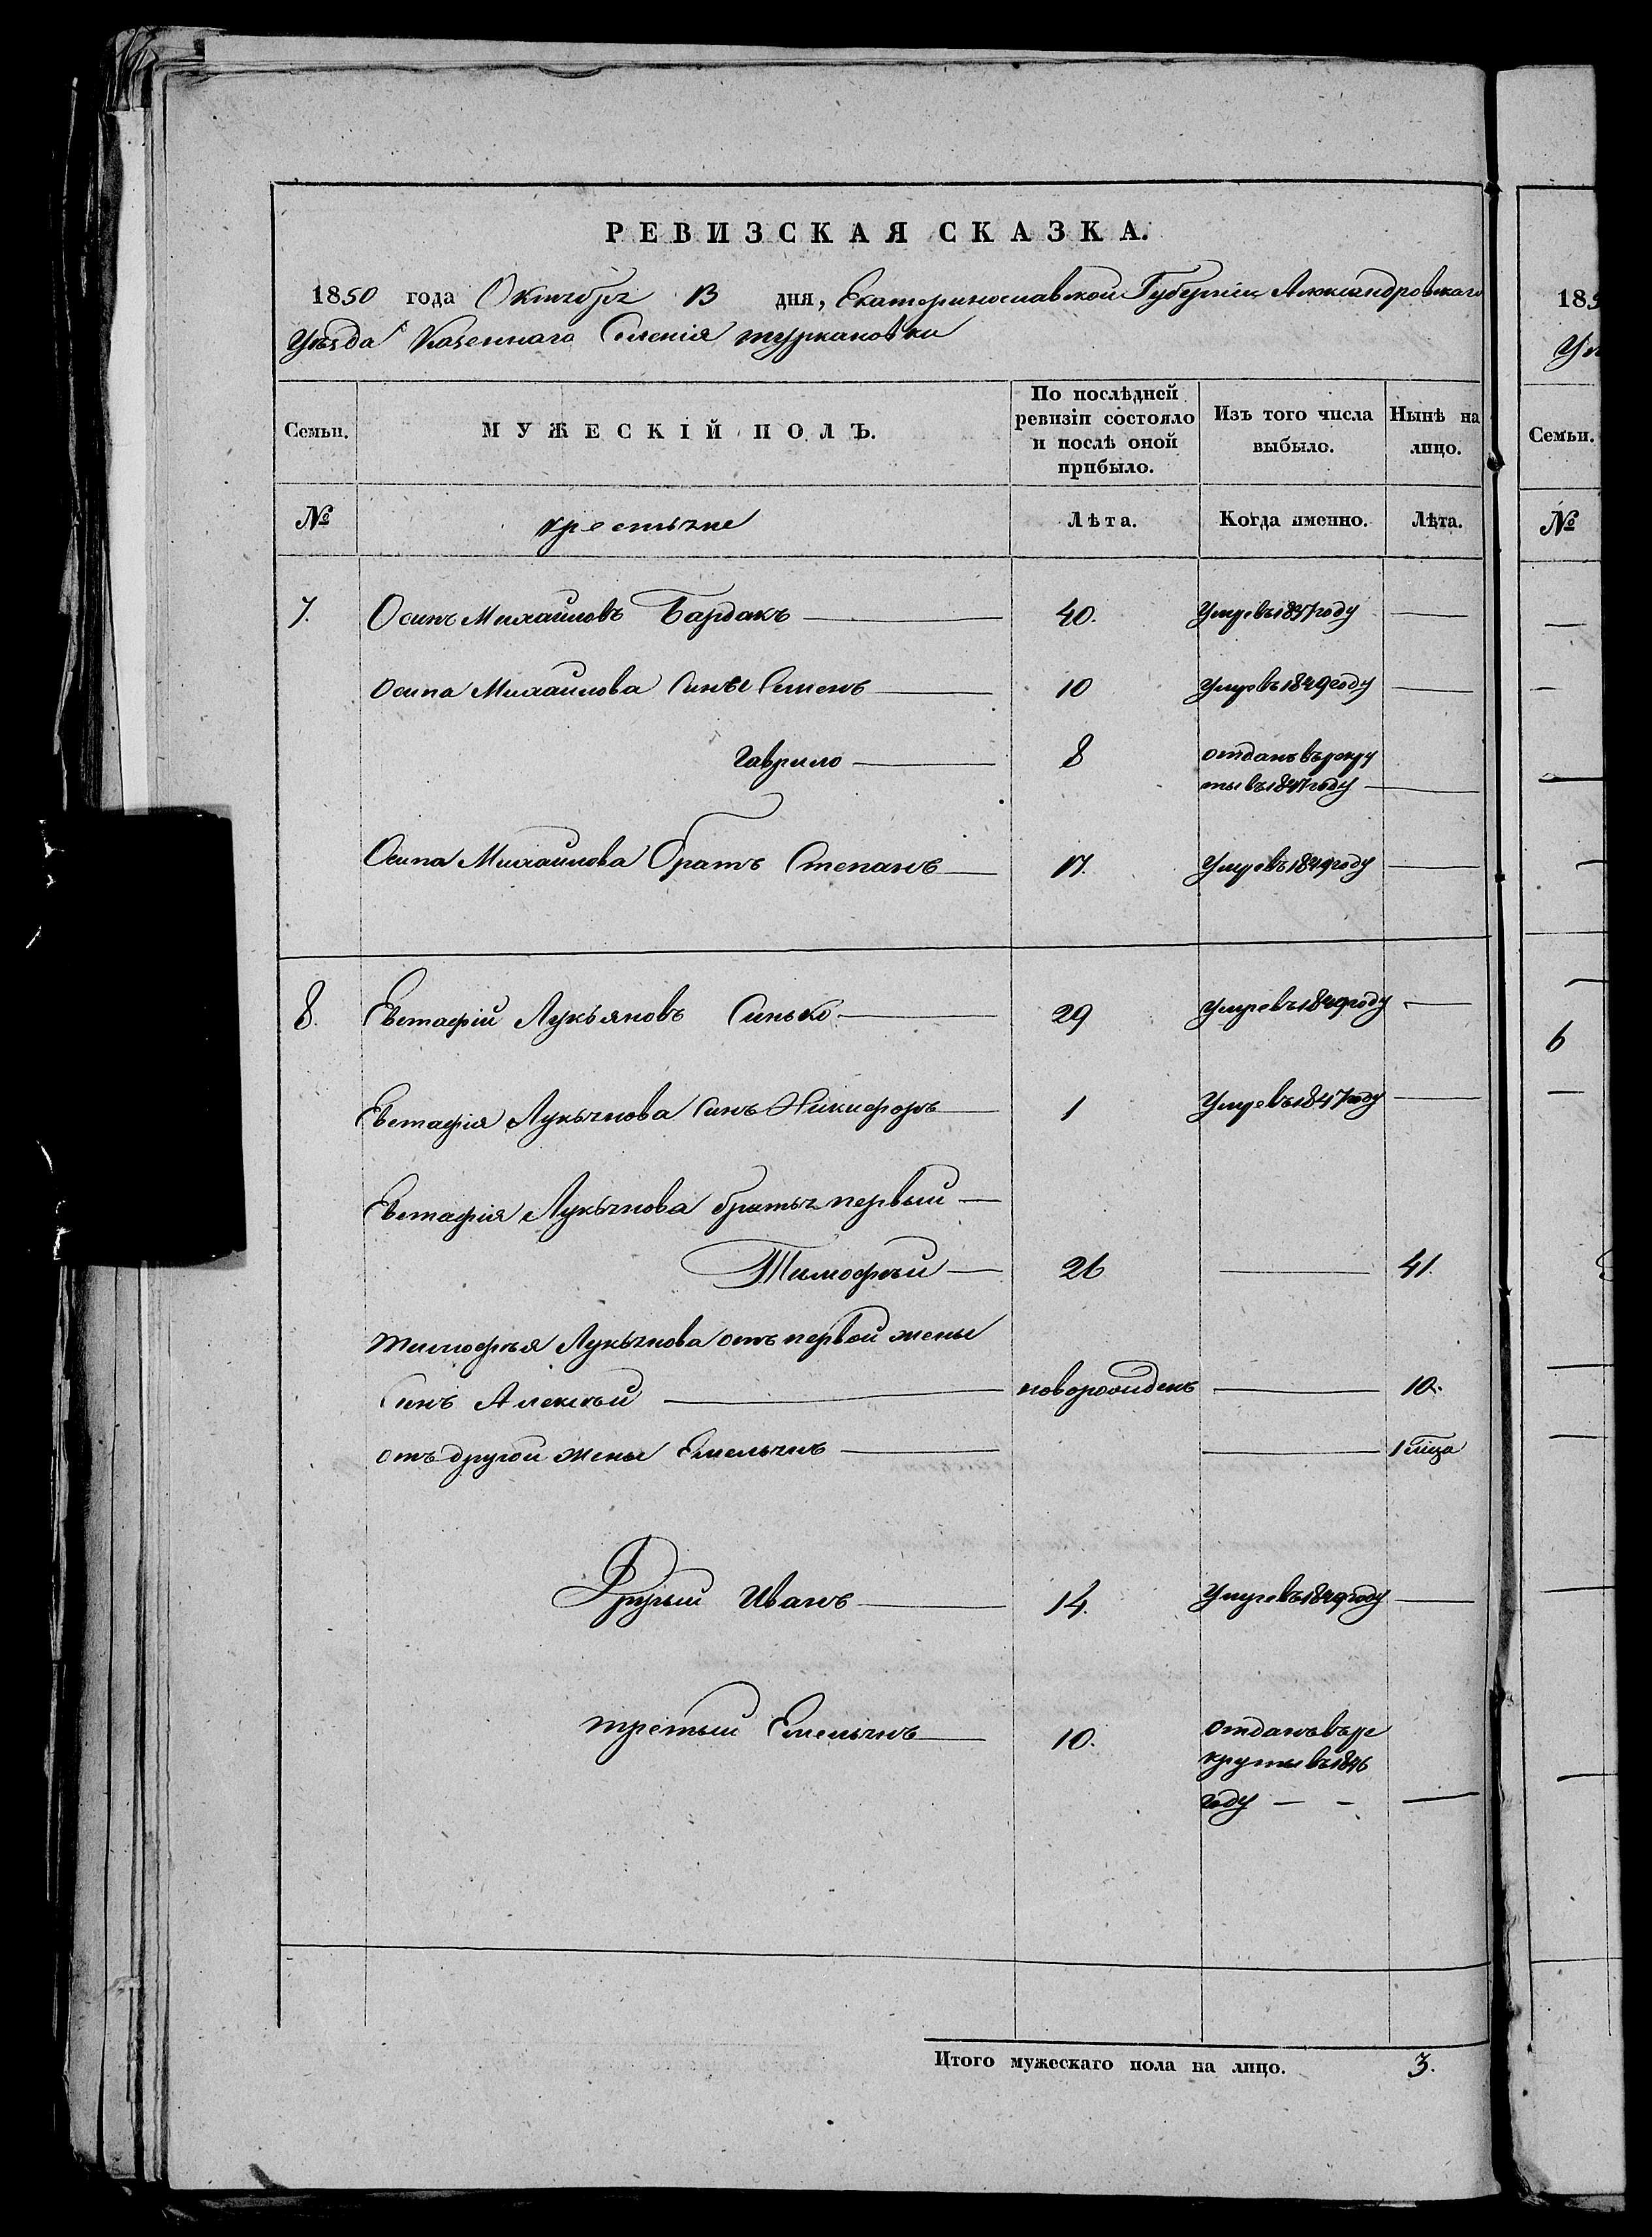 РЕВИЗСКАЯ СКАЗКА.
1850 года Октября 13 дня, Екатеринославской Губерніи Александровскаго
Уѣзда Казеннаго Селенія туркановки
Семьи. МУЖЕСКІЙ ПОЛЪ. По послѣдней ревизіи состояло и послѣ оной прибыло. Изъ того числа выбыло. Нынѣ на лицо.
№ крестьяне Лѣта. Когда именно. Лѣта.
7. Осипъ Михайловъ Бардакъ 40. Умре въ 1837 году
Осипа Михайлова Сынъ Семенъ 10 Умре въ 1849 году
Гаврило 8 отданъ въ рекру
ты въ 1847 году
Осипа Михайлова братъ Степанъ 17. Умре въ 1849 году
8. Евстафій Лукьяновъ Синько 29 Умре въ 1849 году
Евстафія Лукьянова Сынъ Никифоръ 1 Умре въ 1847 году
Евстафія Лукьянова братья первый
Тимофѣй 26 41.
тимофѣя Лукьянова отъ первой жены
Сынъ Алексѣй новорожденъ 10.
отъ другой жены Емельянъ 1 мѣца
Другый Иванъ 14. Умре въ 1849 году
третый Емельянъ 10. Отданъ въ ре
круты въ 1846
году
Итого мужескаго пола на лицо. 3.
185
Уѣ
Семьи.
№
6